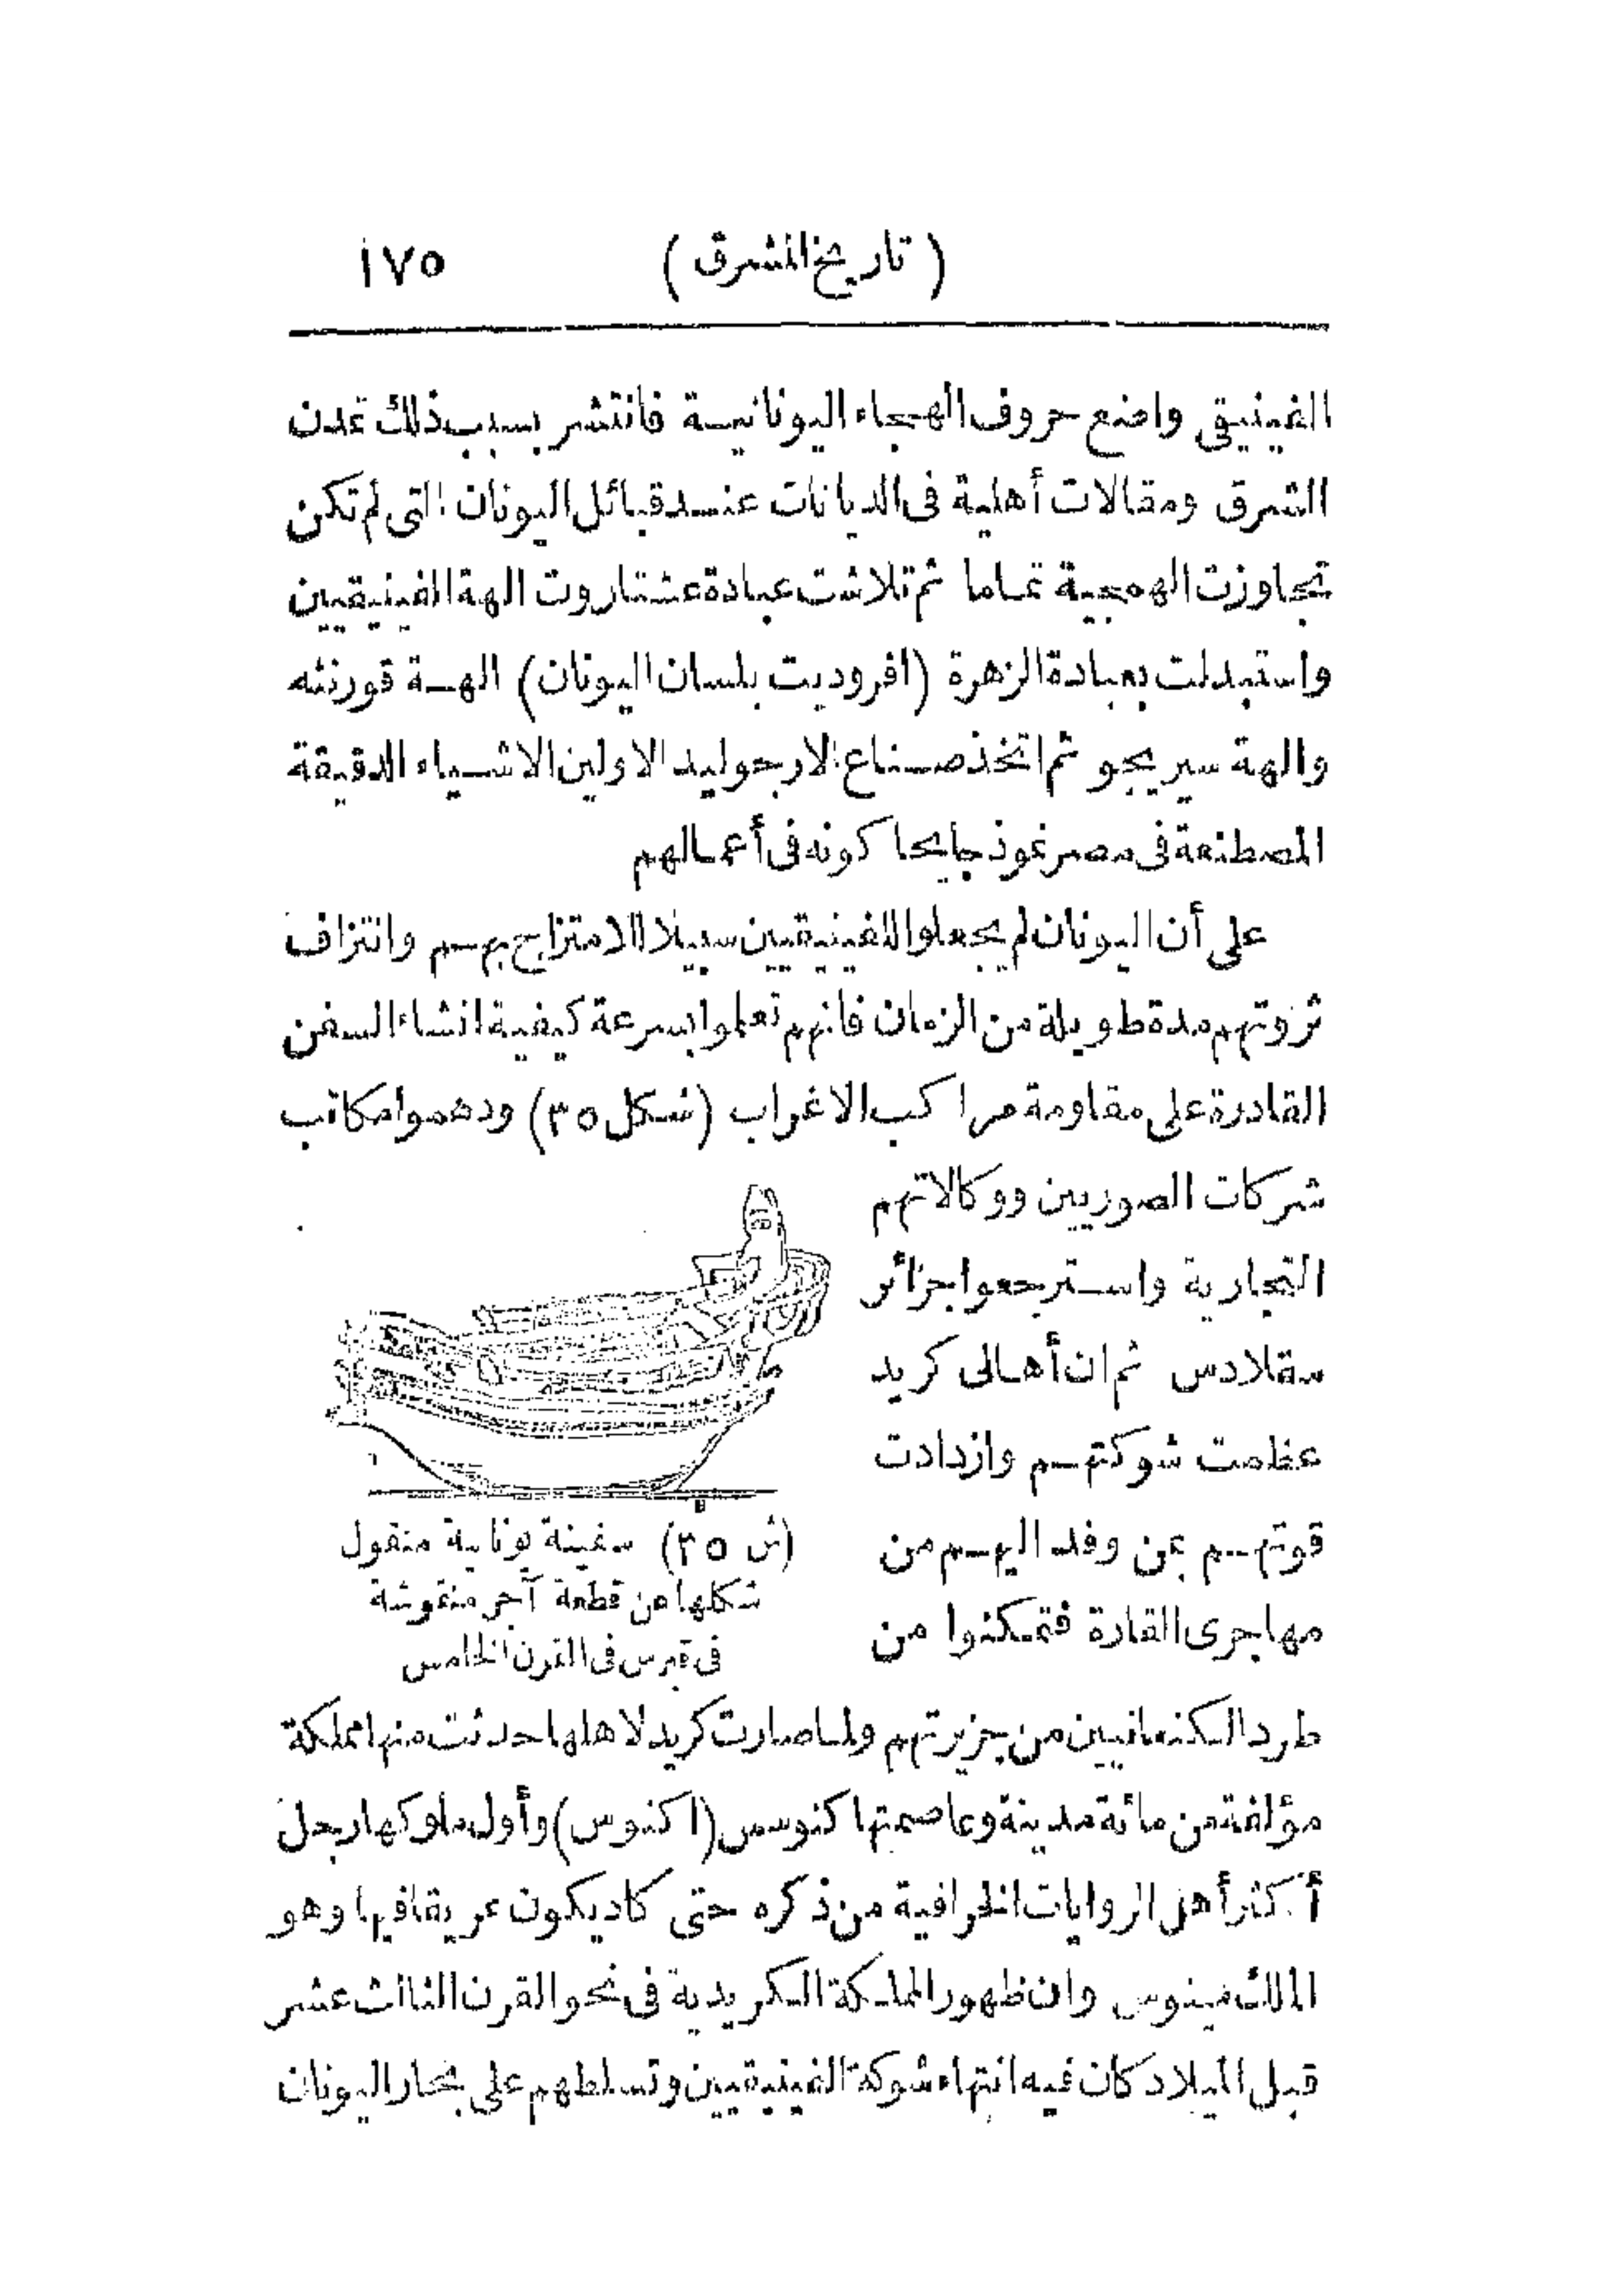 ( تاريخ المشرق ) ١٧٥
الفينيقي واضع حروف الهجاء اليونانيـة فانتشر بسبب ذلك تمدن
الشرق ومقالات أهلية فى الديانات عنـد قبائل اليونان التى لم تكن
تجاوزت الهمجية تماما ثم تلاشت عبادة عشتاروت الهة الفينيقيين
واستبدلت بعبادة الزهرة (افروديت بلسان اليونان) الهـة قورنثه
والهة سيريجو ثم اتخذ صـناع الارجوليد الاولين الاشـياء الدقيقة
المصطنعة فى مصر نموذجا يحاكونه فى أعمالهم
على أن اليونان لم يجعلوا للفينيقيين سبيلا للامتزاج بهـم وانتزاف
ثروتهم مدة طويلة من الزمان فانهم تعلموا بسرعة كيفية انشاء السفن
القادرة على مقاومة مراكب الاغراب (شكل ٣٥) ودهموا مكاتب
شركات الصوريين ووكالاتهم
التجارية واسـترجعوا جزائر
سقلادس ثم ان أهالى كريد
عظمت شوكتهـم وازدادت
قوتهـم بمن وفد اليهـم من
مهاجرى القارة فتمكنوا من
(ش ٣٥) سفينة يونانية منقول
شكلها من قطعة آجر منقوشة
فى قبرس فى القرن الخامس
طرد الكنعانيين من جزيرتهم ولما صارت كريد لاهلها حدثت منها مملكة
مؤلفة من مائة مدينة وعاصمتها كنوسس (اكنوس) وأول ملوكها رجل
أكثر أهل الروايات الخرافية من ذكره حتى كاد يكون عريقا فيها وهو
الملك مينوس وان ظهور المملكة الكريدية فى نحو القرن الثالث عشر
قبل الميلاد كان فيه انتهاء شوكة الفينيقيين وتسلطهم على بحار اليونان